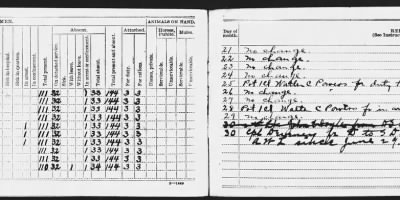 MEN.
ANIMALS ON HAND.
Absent.
Attached.
Horses, Public.
Mules.
Sick in hospital.
Sick in quarters.
In arrest.
In confinement.
Total present.
On detached service.
Sick.
With leave.
Without leave.
In arrest or confinement.
Total absent.
Total present and absent.
For duty.
For rations.
Horses, private.
Serviceable.
Unserviceable.
Serviceable.
Unserviceable.
111 32 1 33 144 3 3
111 32 1 33 144 3 3
111 32 1 33 144 3 3
111 32 1 33 144 3 3
111 32 1 33 144 3 3
1 111 32 1 33 144 3 3
1 111 32 1 33 144 3 3
1 111 32 1 33 144 3 3
111 32 1 33 144 3 3
110 32 1 1 34 144 3 3
Day of month.
RE
(See Instruc
21 No change.
22 No change.
23 No change.
24 No change.
25 Pvt 1cl Walter C for duty t
26 No change.
27 No change.
28 Pvt 1cl Walter C fr in
29 No change.
30
30 Cpl fr D to S D
A W L since June 29